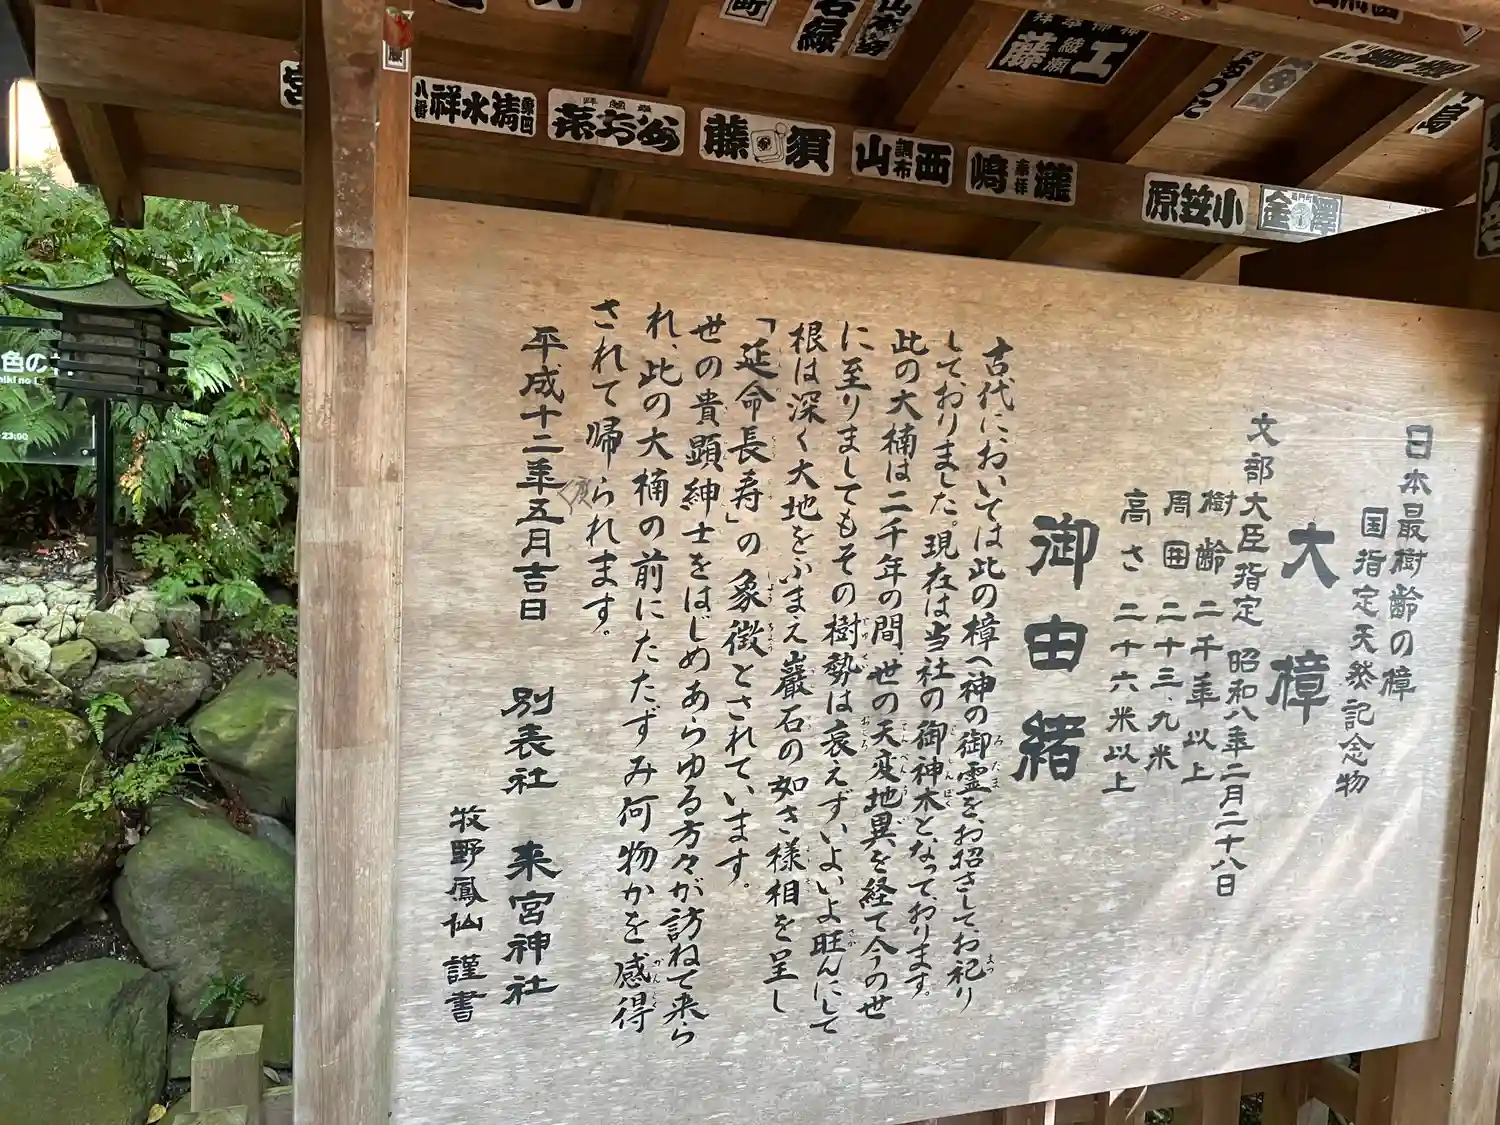 日本最樹齢の樟
国指定天然記念物
大樟
文部大臣指定 昭和八年二月二十八日
樹齢 二千年以上
周囲 二十三、九米
高さ 二十六米以上
御由緒
古代においては此の樟へ神の御霊をお招きしてお祀り
しておりました。現在は当社の御神木となっております。
此の大楠は二千年の間、世の天変地異を経て今の世
に至りましてもその樹勢は衰えずいよいよ旺んにして
根は深く大地をふまえ巌石の如き様相を呈し
「延命長寿」の象徴とされています。
世の貴顕紳士をはじめあらゆる方々が訪ねて来ら
れ、此の大楠の前にたたずみ何物かを感得
されて帰られます。
平成十二年五月吉日
別表社 来宮神社
牧野鳳仙 謹書
八番 祥水清
須藤
西調布山
小笠原
金澤
工藤
色の
23:00